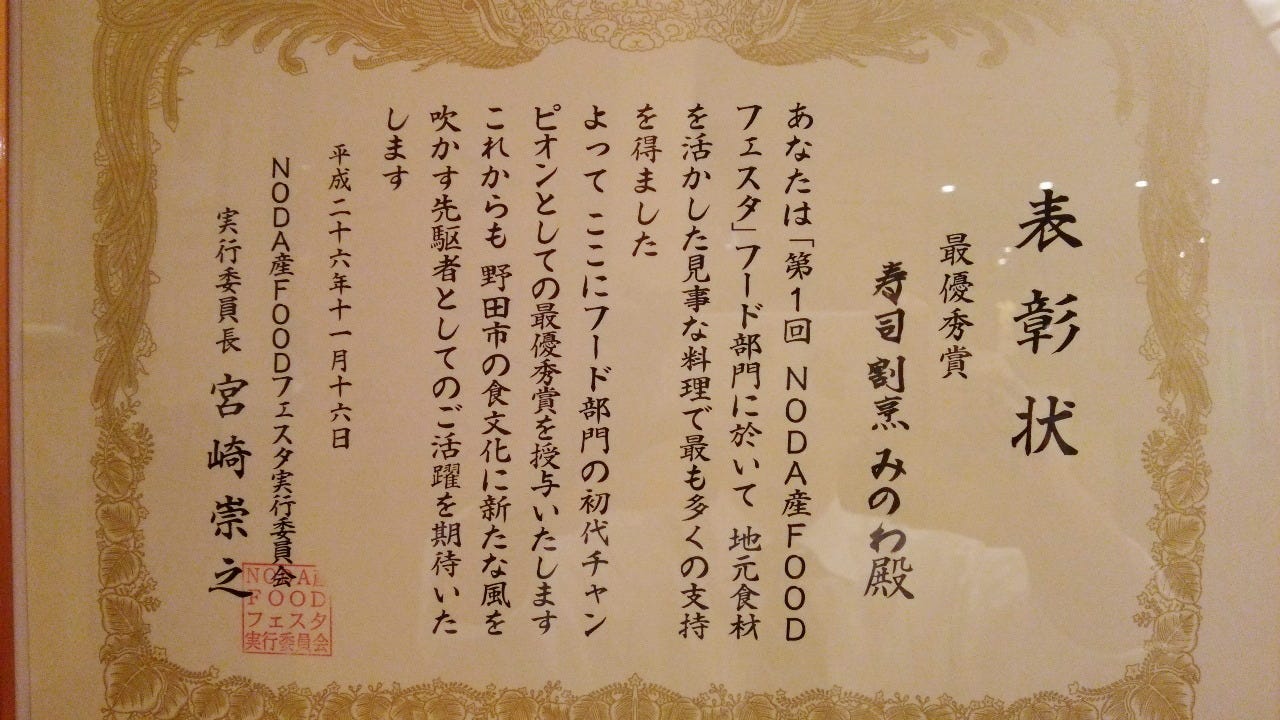 表彰状
最優秀賞
寿司 割烹 みのわ殿
あなたは「第1回 NODA産FOOD
フェスタ」フード部門に於いて 地元食材
を活かした見事な料理で最も多くの支持
を得ました
よって ここにフード部門の初代チャン
ピオンとしての最優秀賞を授与いたします
これからも 野田市の食文化に新たな風を
吹かす先駆者としてのご活躍を期待いた
します
平成二十六年十一月十六日
NODA産FOODフェスタ実行委員会
実行委員長 宮崎崇之
NODA産
FOOD
フェスタ
実行委員会